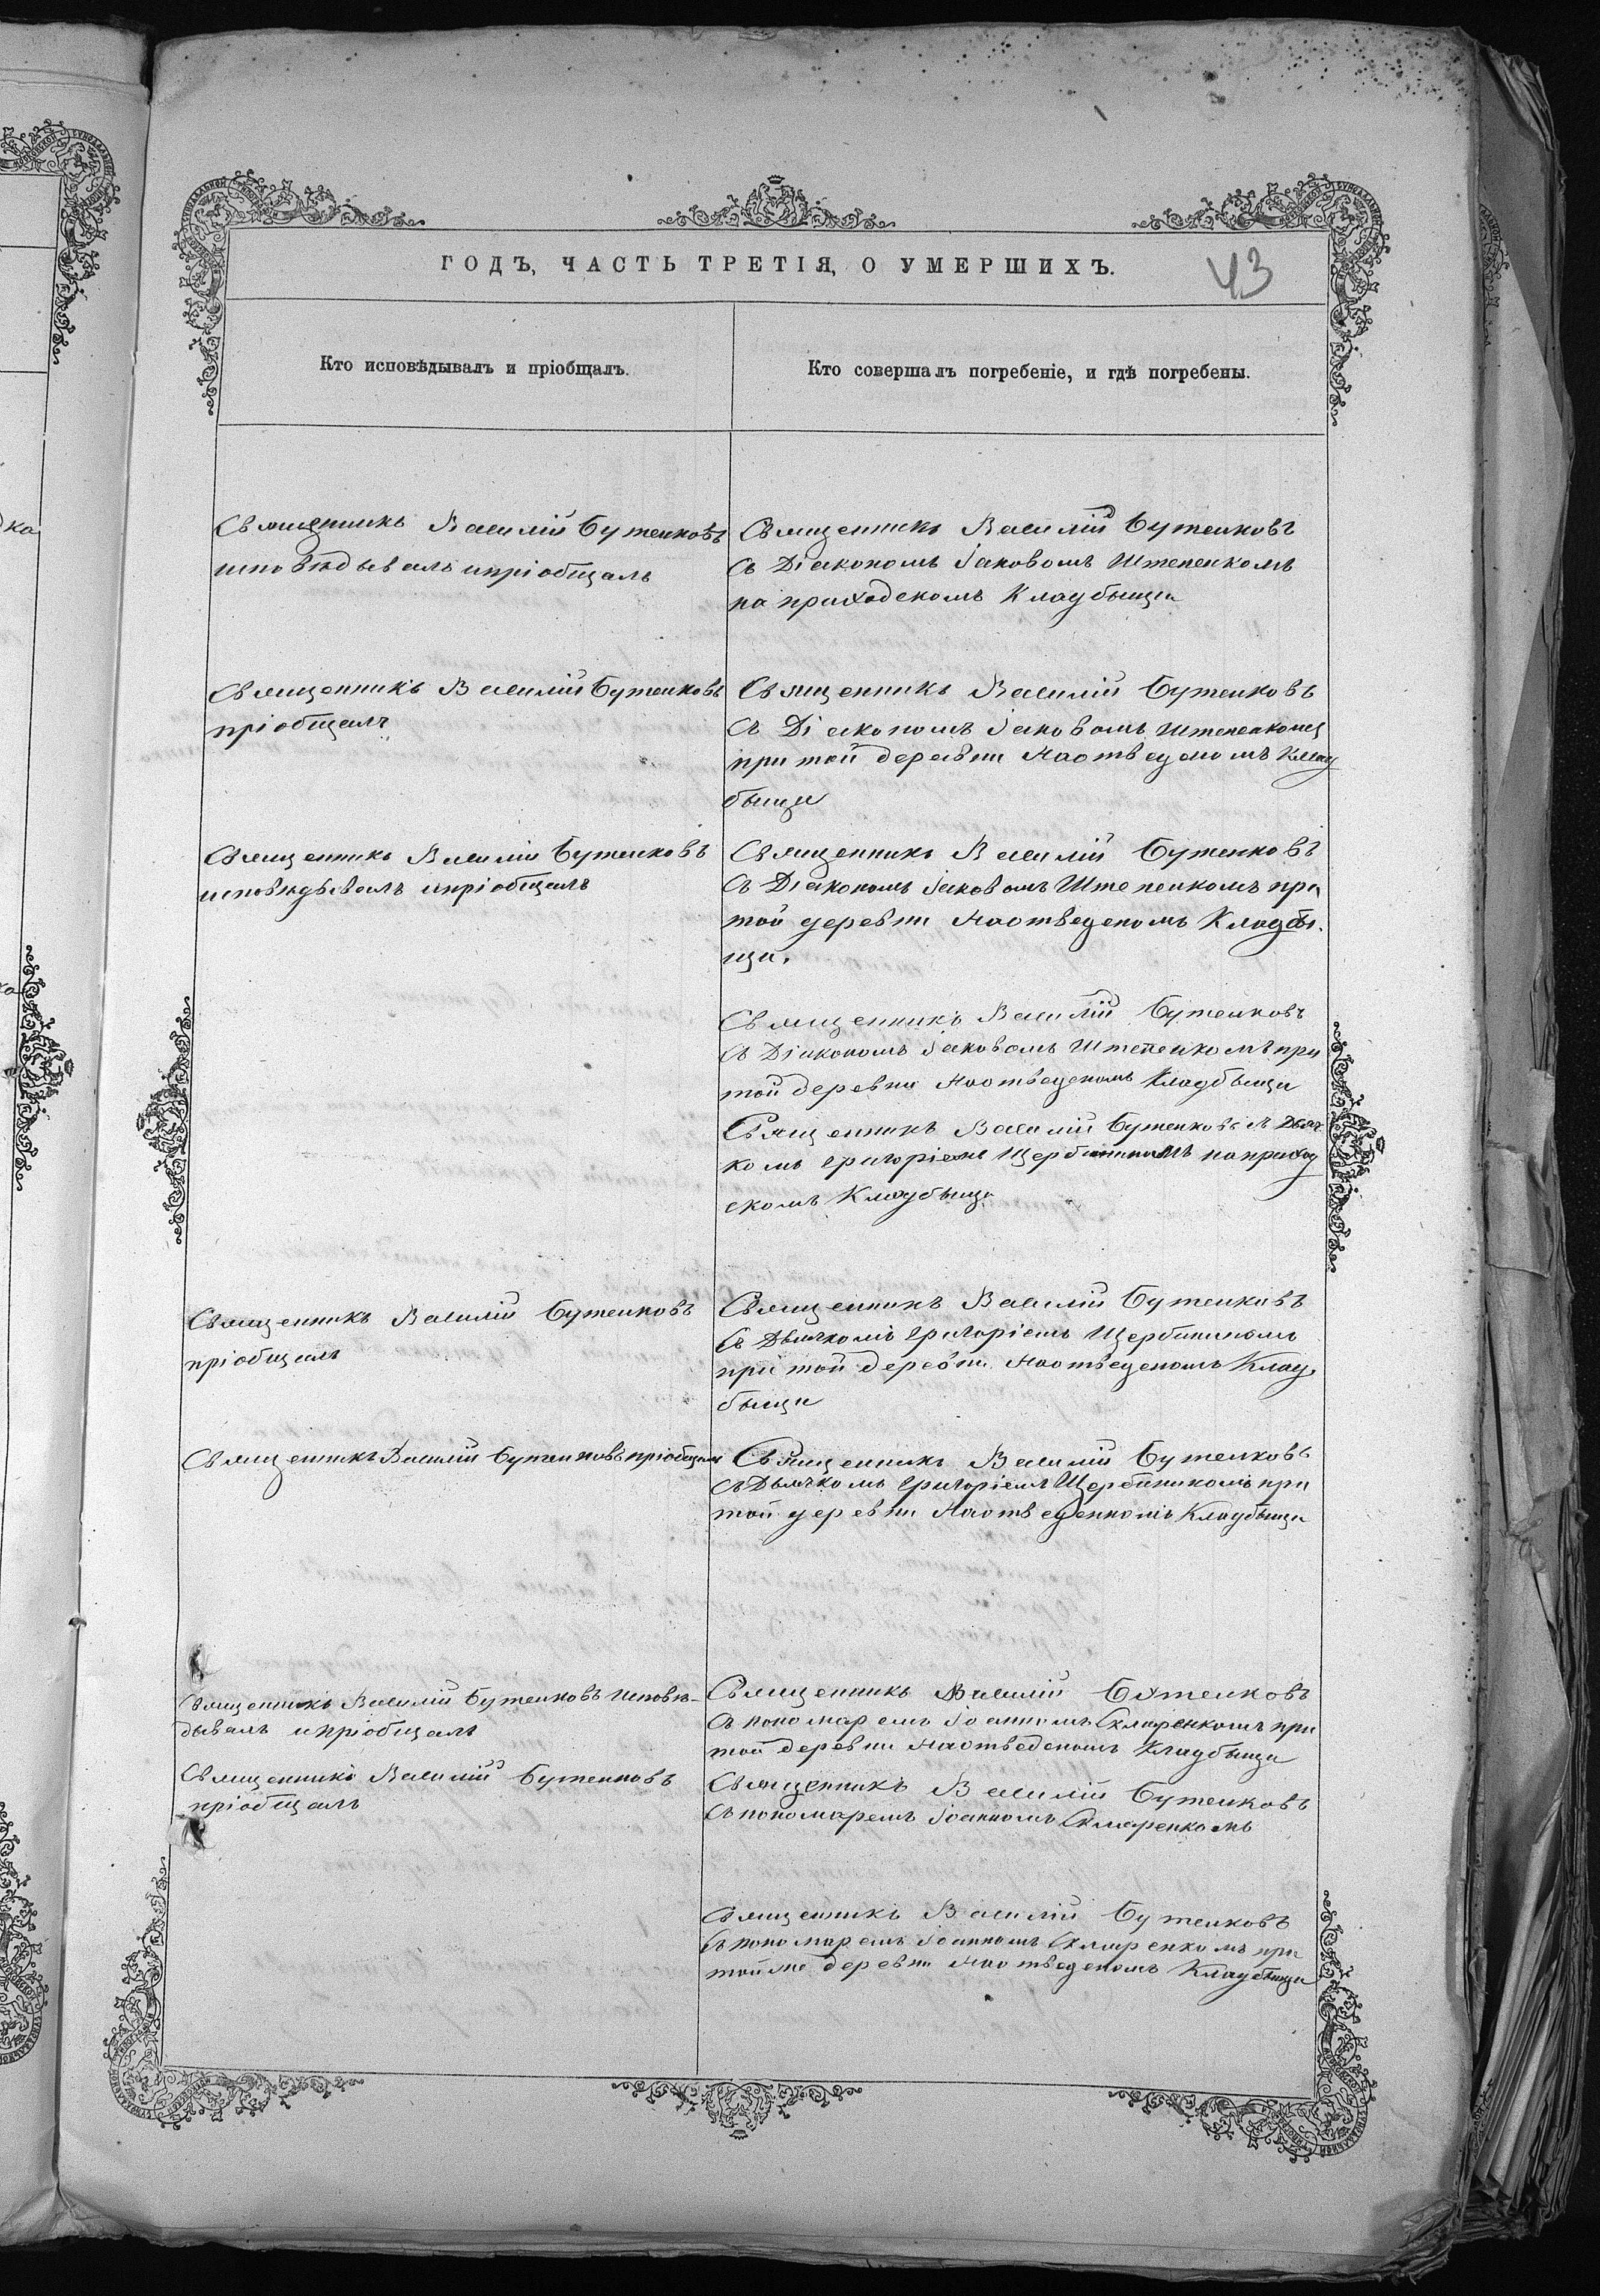 ГОДЪ, ЧАСТЬ ТРЕТІЯ, О УМЕРШИХЪ.
43
Кто исповѣдывалъ и пріобщалъ.
Кто совершалъ погребеніе, и гдѣ погребены.
Священникъ Василій Бутенковъ
исповѣдывалъ и пріобщалъ
Священникъ Василій Бутенковъ
съ Діакономъ Іаковомъ Штепенкомъ
на приходскомъ Кладбыщи
Священникъ Василій Бутенковъ
пріобщалъ
Священникъ Василій Бутенковъ
съ Діакономъ Іаковомъ Штепенкомъ
при той деревни На отведеномъ Клад
быщи
Священникъ Василій Бутенковъ
исповѣдывалъ и пріобщалъ
Священникъ Василій Бутенковъ
съ Діакономъ Іаковомъ Штепенкомъ при
той деревни На отведеномъ Кладбы
щи.
Священникъ Василій Бутенковъ
съ Діакономъ Іаковомъ Штепенкомъ при
той деревни На отведеномъ Кладбыщи
Священникъ Василій Бутенковъ съ Дьяч
комъ Григоріемъ Щербининомъ на приход
скомъ Кладбыщи
Священникъ Василій Бутенковъ
пріобщалъ
Священникъ Василій Бутенковъ
Съ Дьячкомъ Григоріемъ Щербининомъ
при той деревни На отведеномъ Клад
быщи
Священникъ Василій Бутенковъ пріобщалъ
Священникъ Василій Бутенковъ
съ Дьячкомъ Григоріемъ Щербининомъ при
той деревни На отведенномъ Кладбыщи
Священникъ Василій Бутенковъ исповѣ-
дывалъ и пріобщалъ
Священникъ Василій Бутенковъ
съ пономаремъ Іоанномъ Скляренкомъ при
той деревни На отведеномъ Кладбыщи
Священникъ Василій Бутенковъ
пріобщалъ
Священникъ Василій Бутенковъ
съ пономаремъ Іоанномъ Скляренкомъ
Священникъ Василій Бутенковъ
Съ пономаремъ Іоанномъ Скляренкомъ при
той же деревни На отведеномъ Кладбыщи